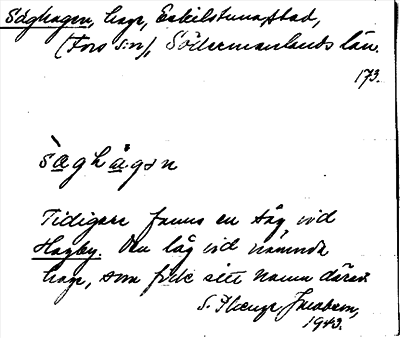 Såghagen, hage, Eskilstuna stad,
(Fors sn), Södermanlands län.
173.
såghågən
Tidigare fanns en såg vid
Hagby. Den låg vid nämnda
hage, som fick sitt namn därav.
S. Plenge Jacobson,
1943.